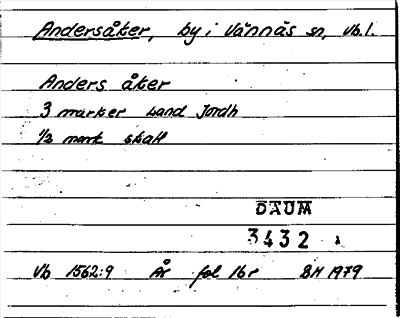 Andersåker, by i Vännäs sn, Vb.l.
Anders åker
3 marker Land Jordh
1/3 mark skatt
DAUM
3432
Vb 1562:9 År fol 16r BH 1979